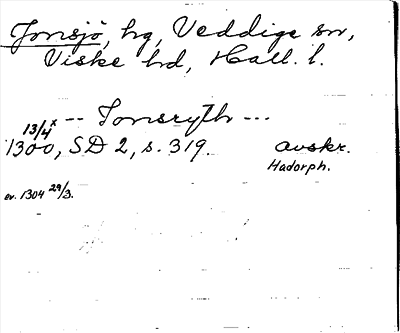 Jonsjö, hg, Veddige sn,
Viske hd, Hall. l.
-- Jonsryth ---
13/4 x
1300, SD 2, s. 319. avskr.
Hadorph.
ev. 1304 29/3.